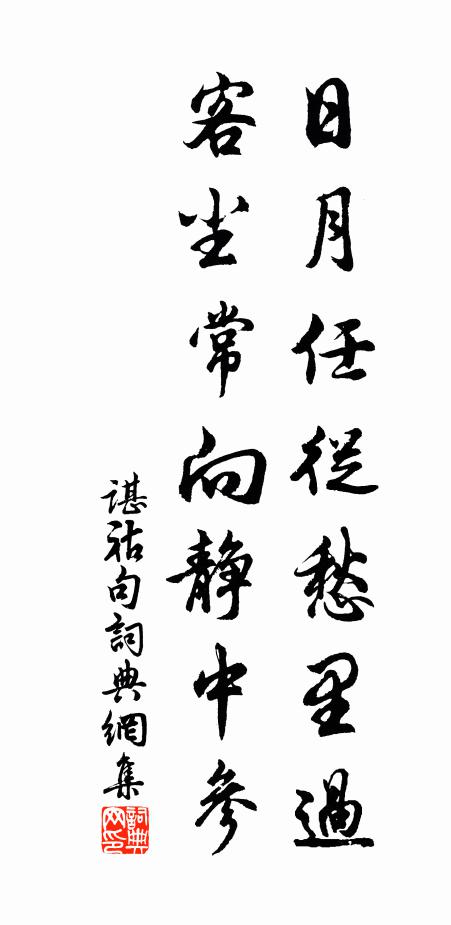 日月任從愁里過
客尘常向静中參
谌祜句詞典網集
詞典网印